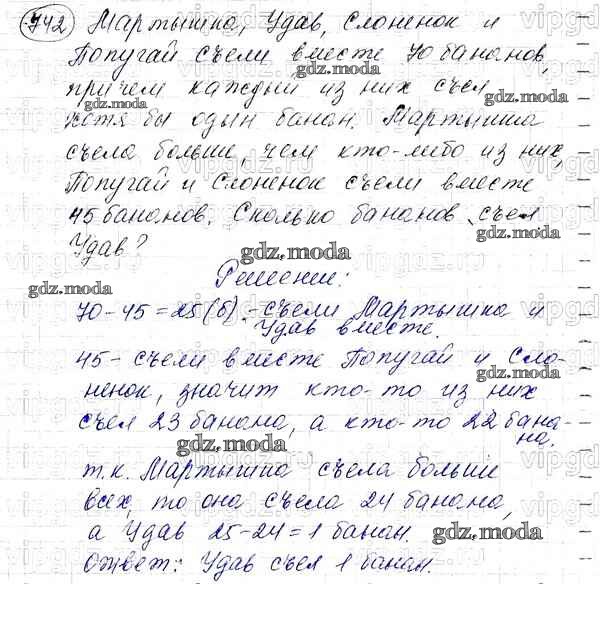 742 Мартышка, Удав, Слоненок и
Попугай съели вместе 70 бананов,
причем каждый из них съел
хотя бы один банан. Мартышка
съела больше, чем кто-либо из них,
Попугай и Слоненок съели вместе
45 бананов. Сколько бананов съел
Удав?
Решение:
70-45=25(б)-съели Мартышка и
Удав вместе.
45 - съели вместе Попугай и Сло-
ненок, значит кто-то из них
съел 23 банана, а кто-то 22 бана-
на.
т.к. Мартышка съела больше
всех, то она съела 24 банана,
а Удав 25-24=1 банан.
Ответ: Удав съел 1 банан.
gdz.moda
gdz.moda
gdz.moda
gdz.moda
gdz.moda
gdz.moda
gdz.moda
gdz.moda
gdz.moda